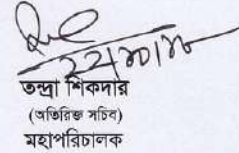 তন্দ্রা শিকদার
(অতিরিক্ত সচিব)
মহাপরিচালক